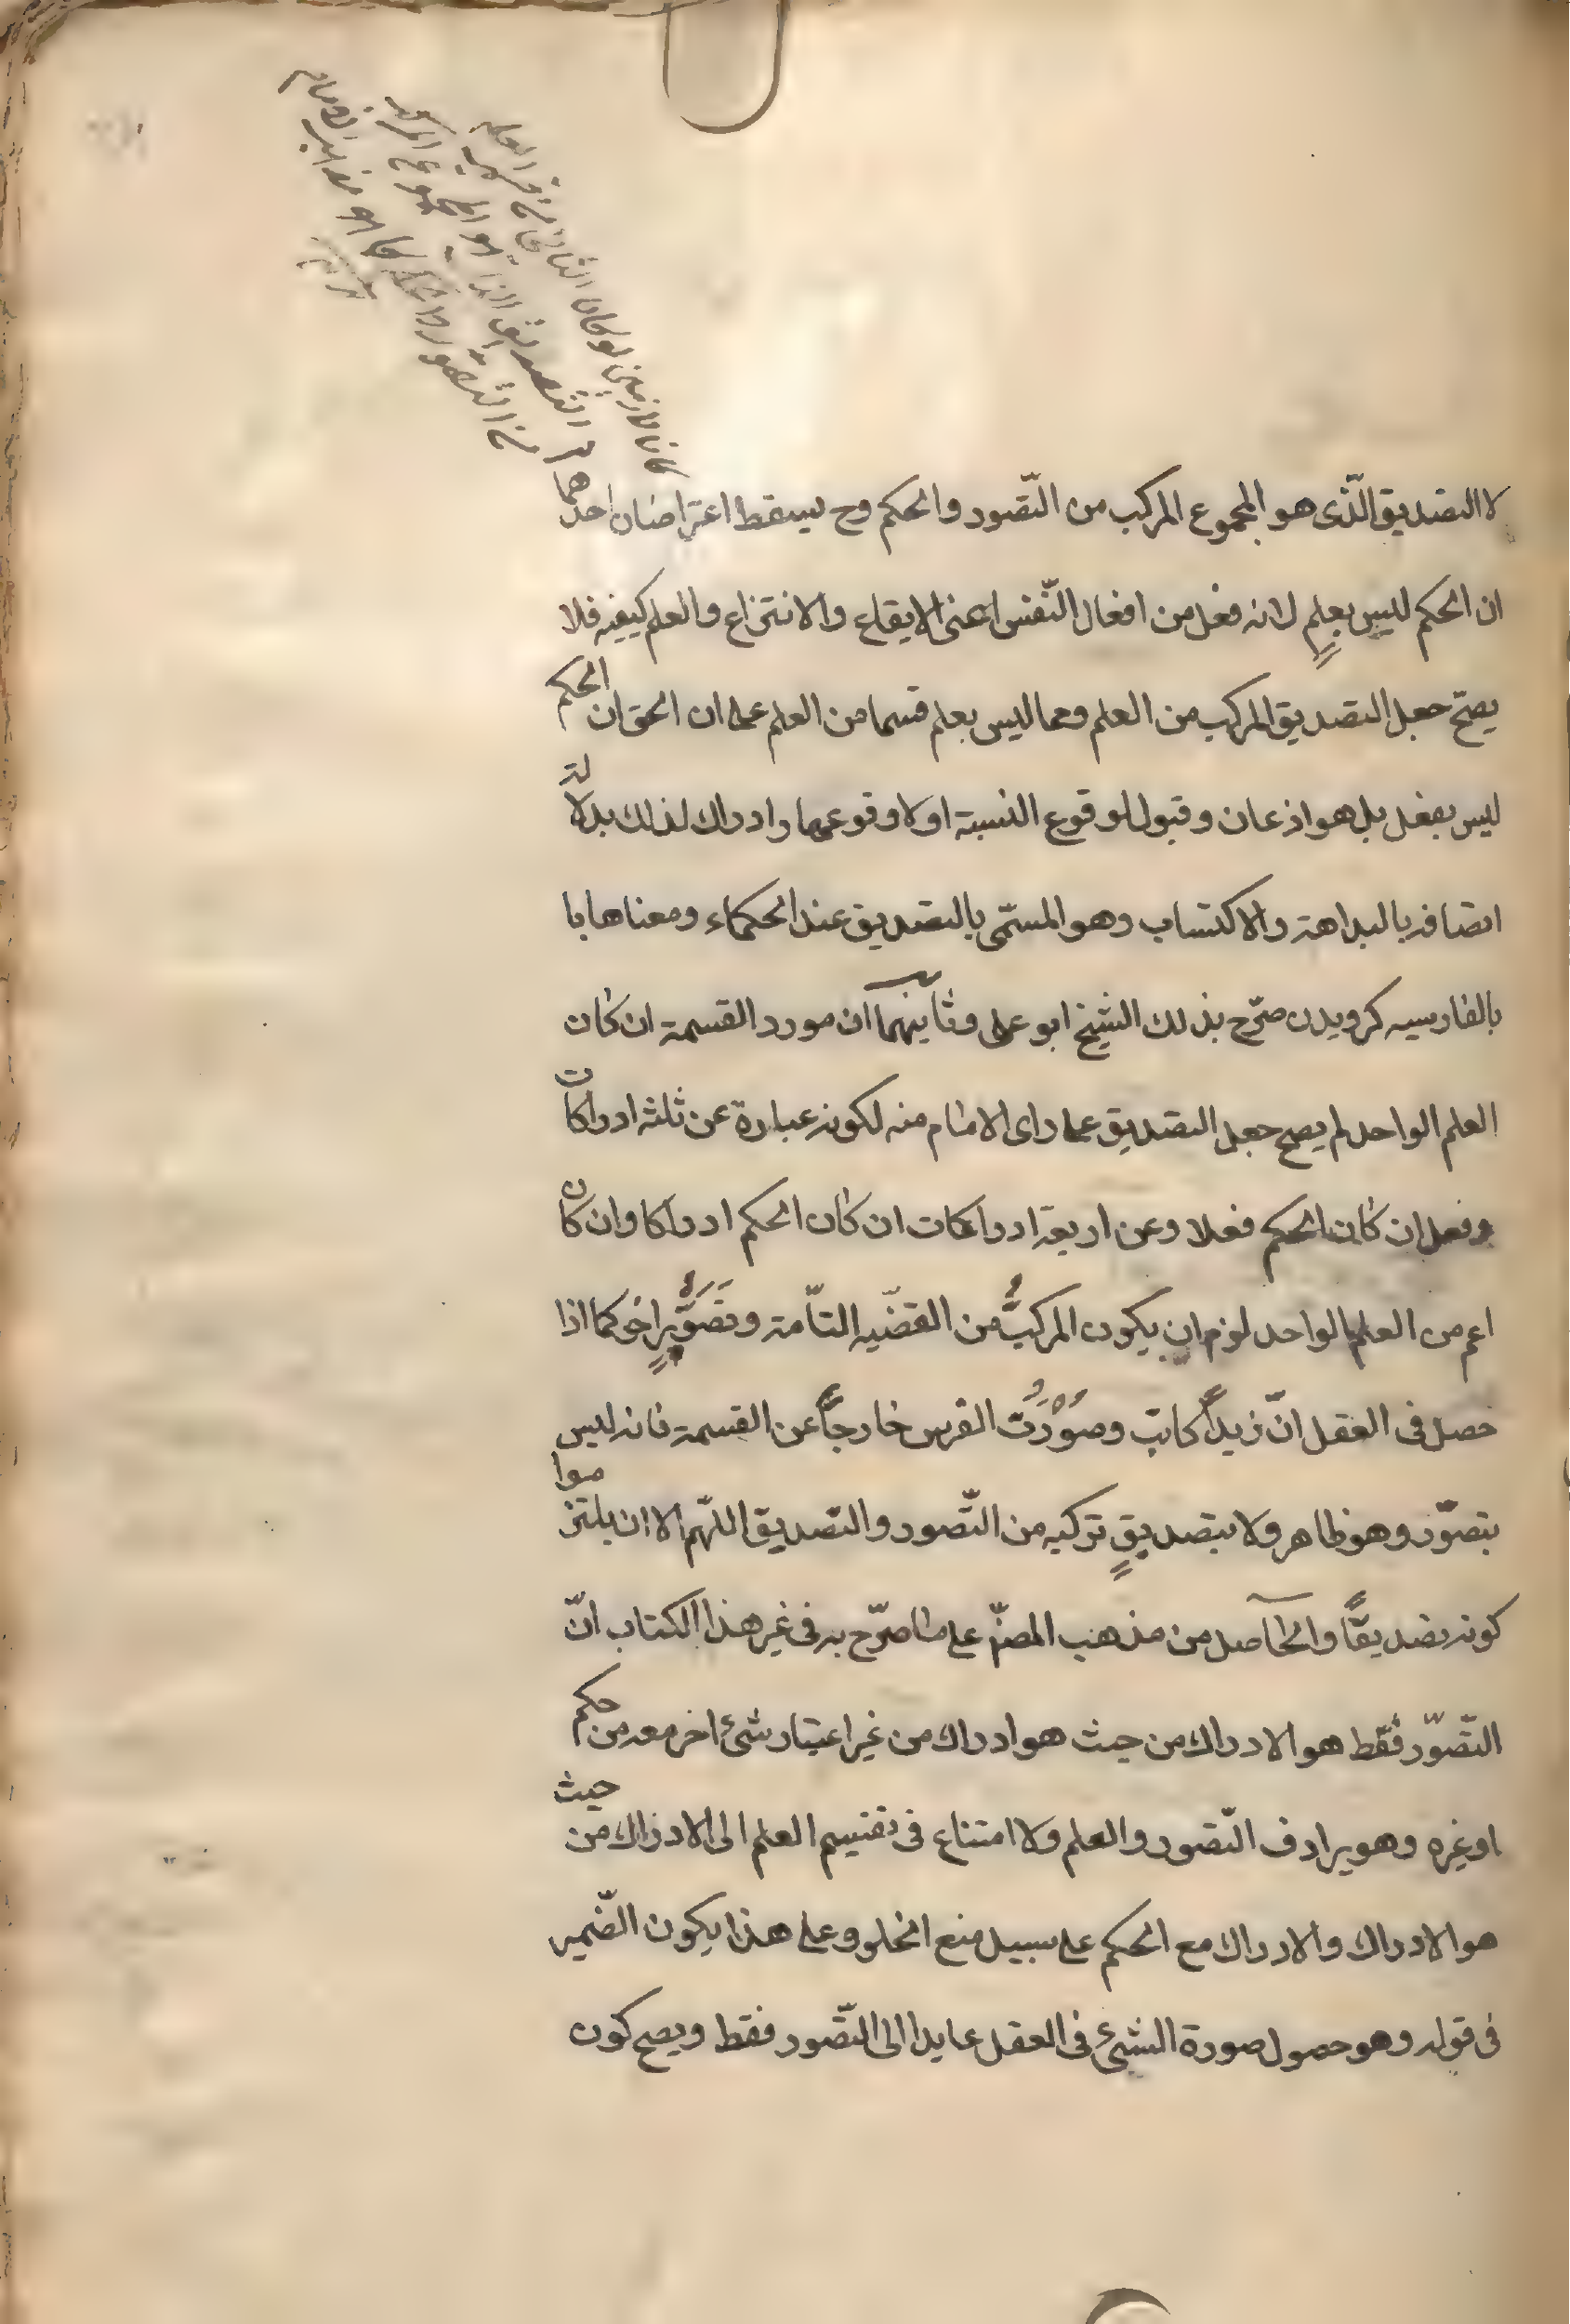 كانا لازمين لو كان الثاني من قسمي العلم
هو التصديق الذي هو المجموع المركب
من التصور والحكم كما هو مذهب الامام
لا التصديق الّذى هو المجموع المركب من التّصور والحكم وح يسقط اعتراضان احدهما
ان الحكم ليس بعلمٍ لانه فعل من افعال النّفس اعنى الايقاع والانتزاع والعلم كيفيه فلا
يصحّ جعل التصديق المركب من العلم ومما ليس بعلم قسما من العلم على ان الحق ان الحكم
ليس بفعل بل هو اذعان وقبول لوقوع النسبة اولا وقوعها وادراك لذلك بدلالة
اتصافه بالبداهة والاكتساب وهو المسمّى بالتصديق عند الحكماء ومعناها با
بالفارسيه كرويدن صرّح بذلك الشيخ ابو على وثانيهما ان مورد القسمة ان كان
العلم الواحد لم يصح جعل التصديق على راى الامام منه لكونه عبارة عن ثلثه ادراكات
وفعل ان كان الحكم فعلا وعن اربعة ادراكات ان كان الحكم ادراكا وان كان
اعم من العلم الواحد لزم ان يكون المركبُ من القضّيه التاّمة وتَصَوُّرٍ اخر كما اذا
حصل فى العقل انّ زيداً كاتب وصُوْرَتُ الفرس خارجاً عن القسمة فانه ليس
بتصوّر وهو ظاهر ولا بتصديقٍ تركبه من التّصور والتصديق اللّهم الا ان يلتزموا
كونه تصديقاً والحاصل من مذهب المصنّ على ما صرّح به فى غير هذا الكتاب انّ
التّصوّر فقط هو الادراك من حيث هو ادراك من غير اعتبار شئ اخر معه من حكم
او غيره وهو يرادف التّصور والعلم ولا امتناع فى تقسيم العلم الى الادراك من حيث
هو الادراك والادراك مع الحكم على سبيل منع الخلو وعلى هذا يكون الضّمير
فى قوله وهو حصول صورة الشئ فى العقل عايدا الى التّصور فقط ويصح كون